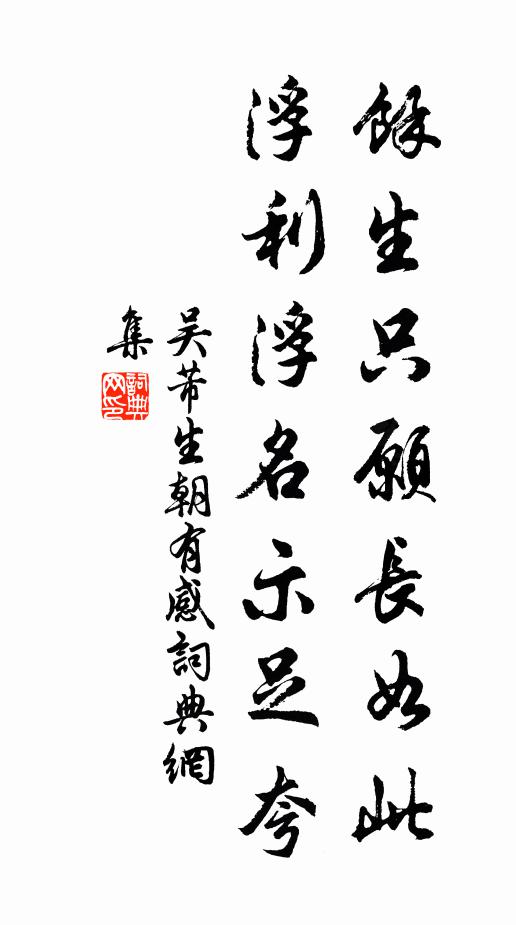 餘生只願長如此
浮利浮名示足夸
吳芾生朝有感詞典網
集
詞典
网印